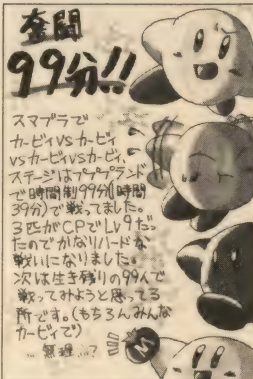 奮闘
99分!!
スマブラで
カービィVSカービィ
VSカービィVSカービィ、
ステージはプププランド
で時間制99分(1時間
39分)で戦ってました。
3匹がCPでLv9だっ
たのでかなりハードな
戦いになりました。
次は生き残りの99人で
戦ってみようと思ってる
所です。(もちろんみんな
カービィで)
…無理…?
M